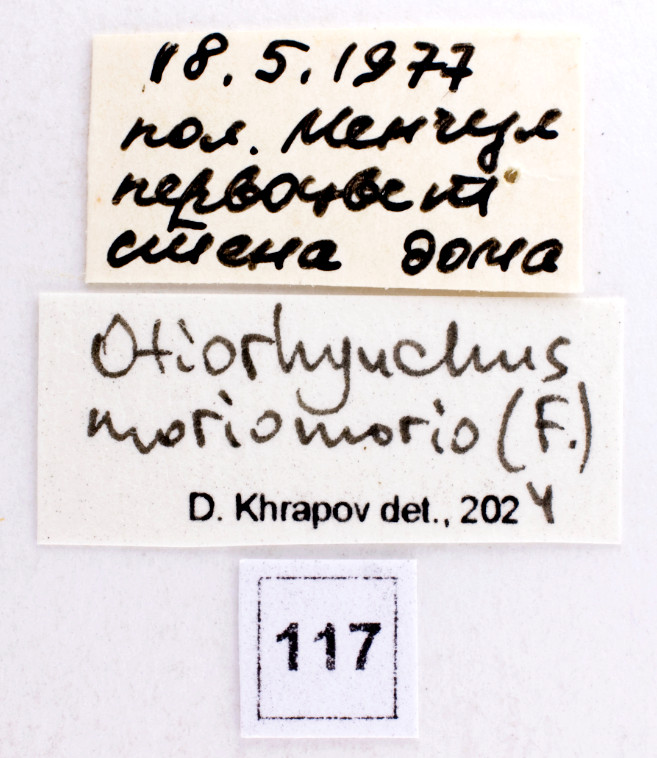 18.5.1977
пол. Менчул
первоцвет
стена дома
Otiorhynchus
morio morio (F.)
D. Khrapov det., 2024
117